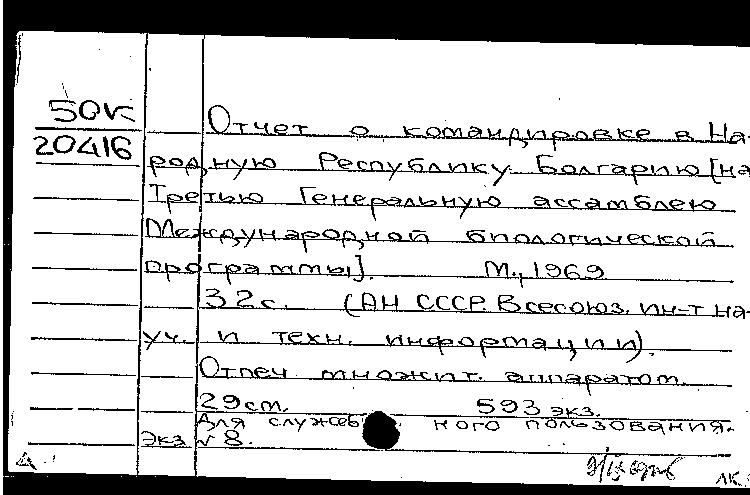 50К
20416
Отчет о командировке в На-
родную Республику Болгарию [на
Третью Генеральную ассамблею
Международной биологической
программы]. М., 1969
32с. (АН СССР. Всесоюз. ин-т на-
уч. и техн. информации).
Отпеч. множит. аппаратом.
29см. 593 экз.
Для служеб ного пользования.
Экз №8.